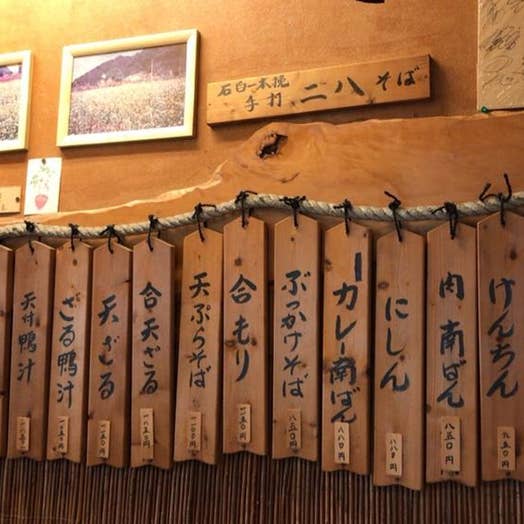 石臼一本挽
手打 二八そば
けんちん
九五〇円
肉南ばん
八五〇円
にしん
八八〇円
カレー南ばん
八八〇円
ぶっかけそば
八五〇円
合もり
一一五〇円
天ぷらそば
一一〇〇円
合天ざる
天ざる
ざる鴨汁
天付鴨汁